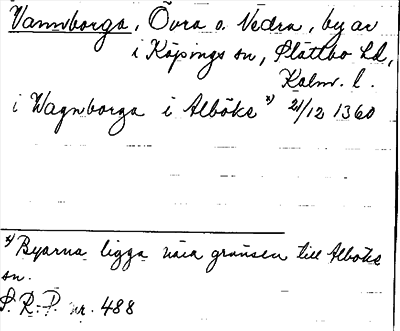 Vannborga, Övra o. Nedra, byar
i Köpings sn, Slättbo hd,
Kalm. l.
i Wagnborga i Alböke x) 21/12 1360
x) Byarna ligga nära gränsen till Alböke
sn.
S. R. P. nr. 488